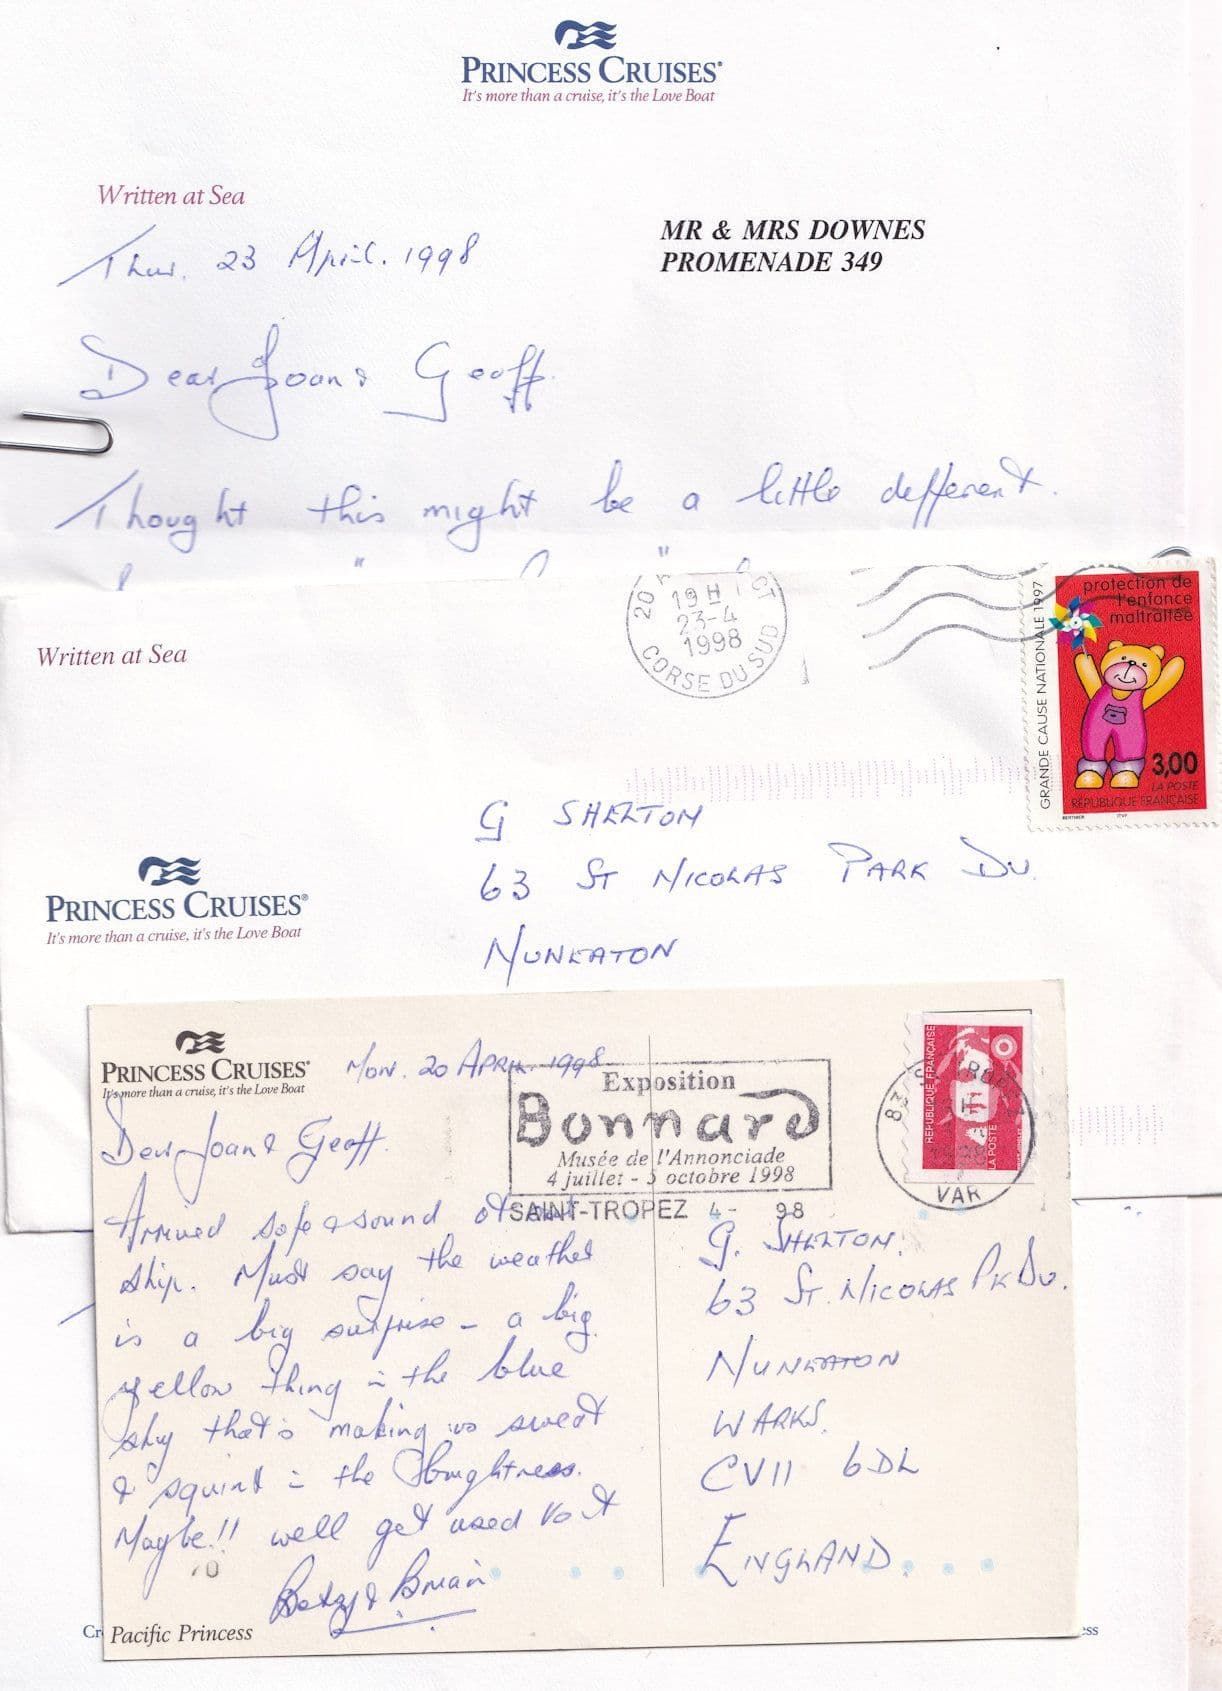 PRINCESS CRUISES®
It's more than a cruise, it's the Love Boat
Written at Sea
MR & MRS DOWNES
PROMENADE 349
Thur. 23 April. 1998
Dear Joan & Geoff.
Thought this might be a little different.
19 H
23-4
1998
CORSE DU SUD
GRANDE CAUSE NATIONALE 1997
protection de
l'enfance
maltraitée
3,00
LA POSTE
RÉPUBLIQUE FRANÇAISE
Written at Sea
PRINCESS CRUISES®
It's more than a cruise, it's the Love Boat
G SHELTON
63 ST NICOLAS PARK DV.
NUNEATON
PRINCESS CRUISES®
It's more than a cruise, it's the Love Boat
MON. 20 APRIL. 1998
Dear Joan & Geoff.
Arrived safe & sound
ship. Must say the weather
is a big surprise - a big
yellow thing in the blue
sky that's making us sweat
& squint in the brightness.
Maybe!! well get used to it
Betty & Brian
Pacific Princess
Exposition
Bonnard
Musée de l'Annonciade
4 juillet - 5 octobre 1998
SAINT-TROPEZ 4- 98
RÉPUBLIQUE FRANÇAISE
LA POSTE
83
VAR
G. SHELTON.
63 ST. NICOLAS PK DV.
NUNEATON
WARKS.
CV11 6DL
ENGLAND.